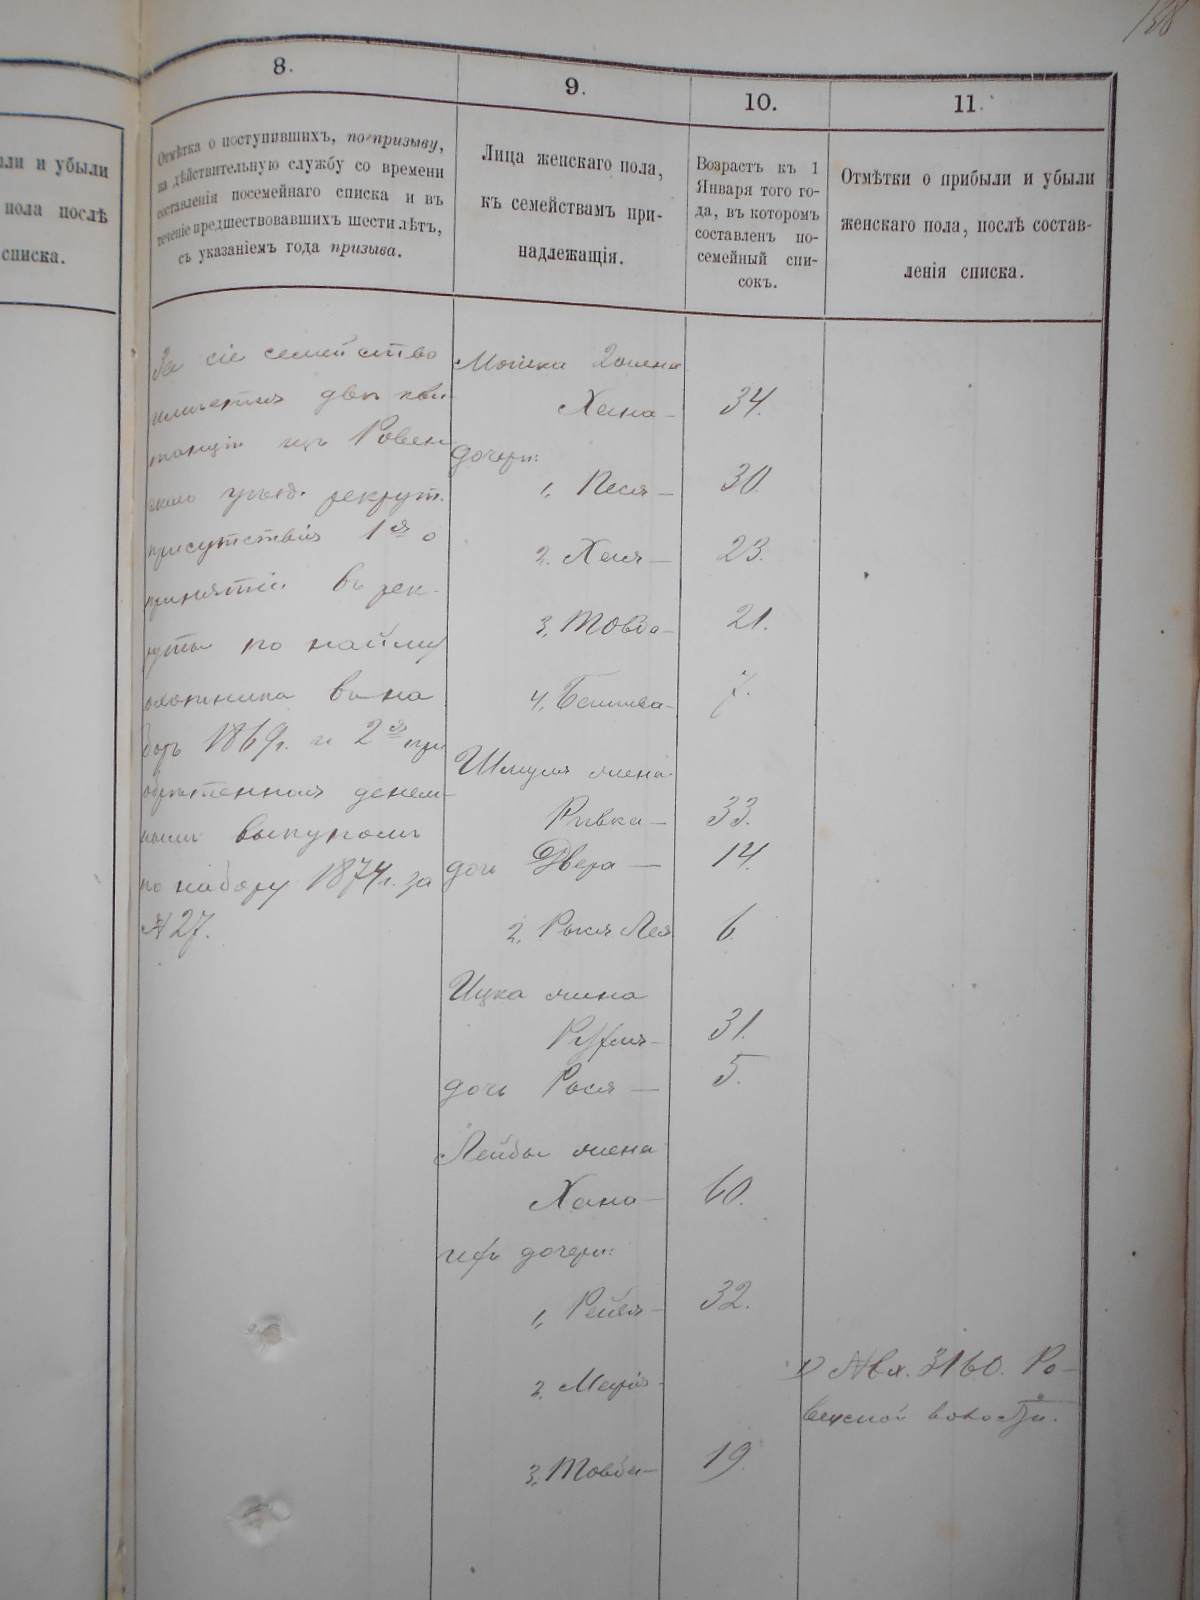 138
ыли и убыли
пола послѣ
списка.
8.
9.
10.
11.
Отмѣтка о поступившихъ, по призыву,
на дѣйствительную службу со времени
составленія посемейнаго списка и въ
теченіе предшествовавшихъ шести лѣтъ,
съ указаніемъ года призыва.
Лица женскаго пола,
къ семействамъ при-
надлежащія.
Возрастъ къ 1
Января того го-
да, въ которомъ
составленъ по-
семейный спи-
сокъ.
Отмѣтки о прибыли и убыли
женскаго пола, послѣ состав-
ленія списка.
За сіе семейство
имѣется двѣ кви-
танціи изъ Ровен
скаго уѣзд. рекрут.
присутствія 1ая о
принятіи въ рек-
руты по найму
охотника въ на
боръ 1869 г. и 2ая прі
обрѣтенная денеж-
нымъ выкупомъ
по набору 1874 г. за
№ 27.
Мошка жена
Хана — 34.
дочери:
1, Песя — 30.
2, Хая — 23.
3, Товба — 21.
4, Башива — 7.
Шмуля жена
Ривка — 33.
дочь Двера — 14.
2, Рыся Лея 6.
Ицка жена
31.
дочь Рося — 5.
Лейбы жена
Хана — 60.
ихъ дочери:
1, Рейзя — 32.
2, Марія —
1) № вх. 3160. Ро-
венской волости.
3, Товба — 19.